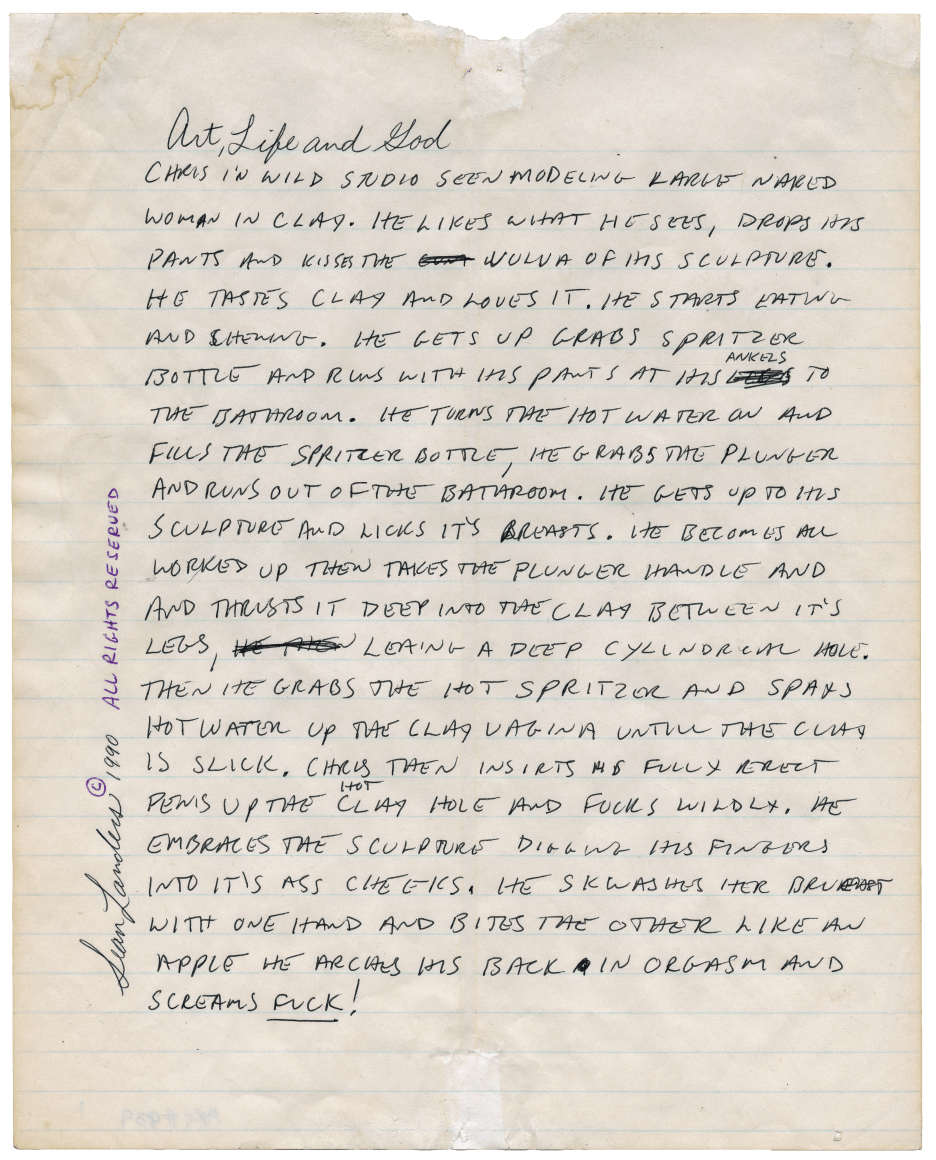 Art, Life and God
CHRIS IN WILD STUDIO SEEN MODELING LARGE NAKED
WOMAN IN CLAY. HE LIKES WHAT HE SEES, DROPS HIS
PANTS AND KISSES THE VULVA OF HIS SCULPTURE.
HE TASTES CLAY AND LOVES IT. HE STARTS EATING
AND CHEWING. HE GETS UP GRABS SPRITZER
ANKELS
BOTTLE AND RUNS WITH HIS PANTS AT HIS LEGS TO
THE BATHROOM. HE TURNS THE HOT WATER ON AND
FILLS THE SPRITZER BOTTLE, HE GRABS THE PLUNGER
AND RUNS OUT OF THE BATHROOM. HE GETS UP TO HIS
SCULPTURE AND LICKS IT'S BREASTS. HE BECOMES ALL
WORKED UP THEN TAKES THE PLUNGER HANDLE AND
AND THRUSTS IT DEEP INTO THE CLAY BETWEEN IT'S
LEGS, HE THEN LEAING A DEEP CYLINDRCAL HOLE.
THEN HE GRABS THE HOT SPRITZER AND SPAYS
HOT WATER UP THE CLAY VAGINA UNTILL THE CLAY
IS SLICK. CHRIS THEN INSIRTS HIS FULLY ERECT
HOT
PENIS UP THE CLAY HOLE AND FUCKS WILDLY. HE
EMBRACES THE SCULPTURE DIGGING HIS FINGERS
INTO IT'S ASS CHEEKS. HE SKWASHES HER BREAST
WITH ONE HAND AND BITES THE OTHER LIKE AN
APPLE HE ARCHES HIS BACK IN ORGASM AND
SCREAMS FUCK!
Sean Landers © 1990 ALL RIGHTS RESERVED